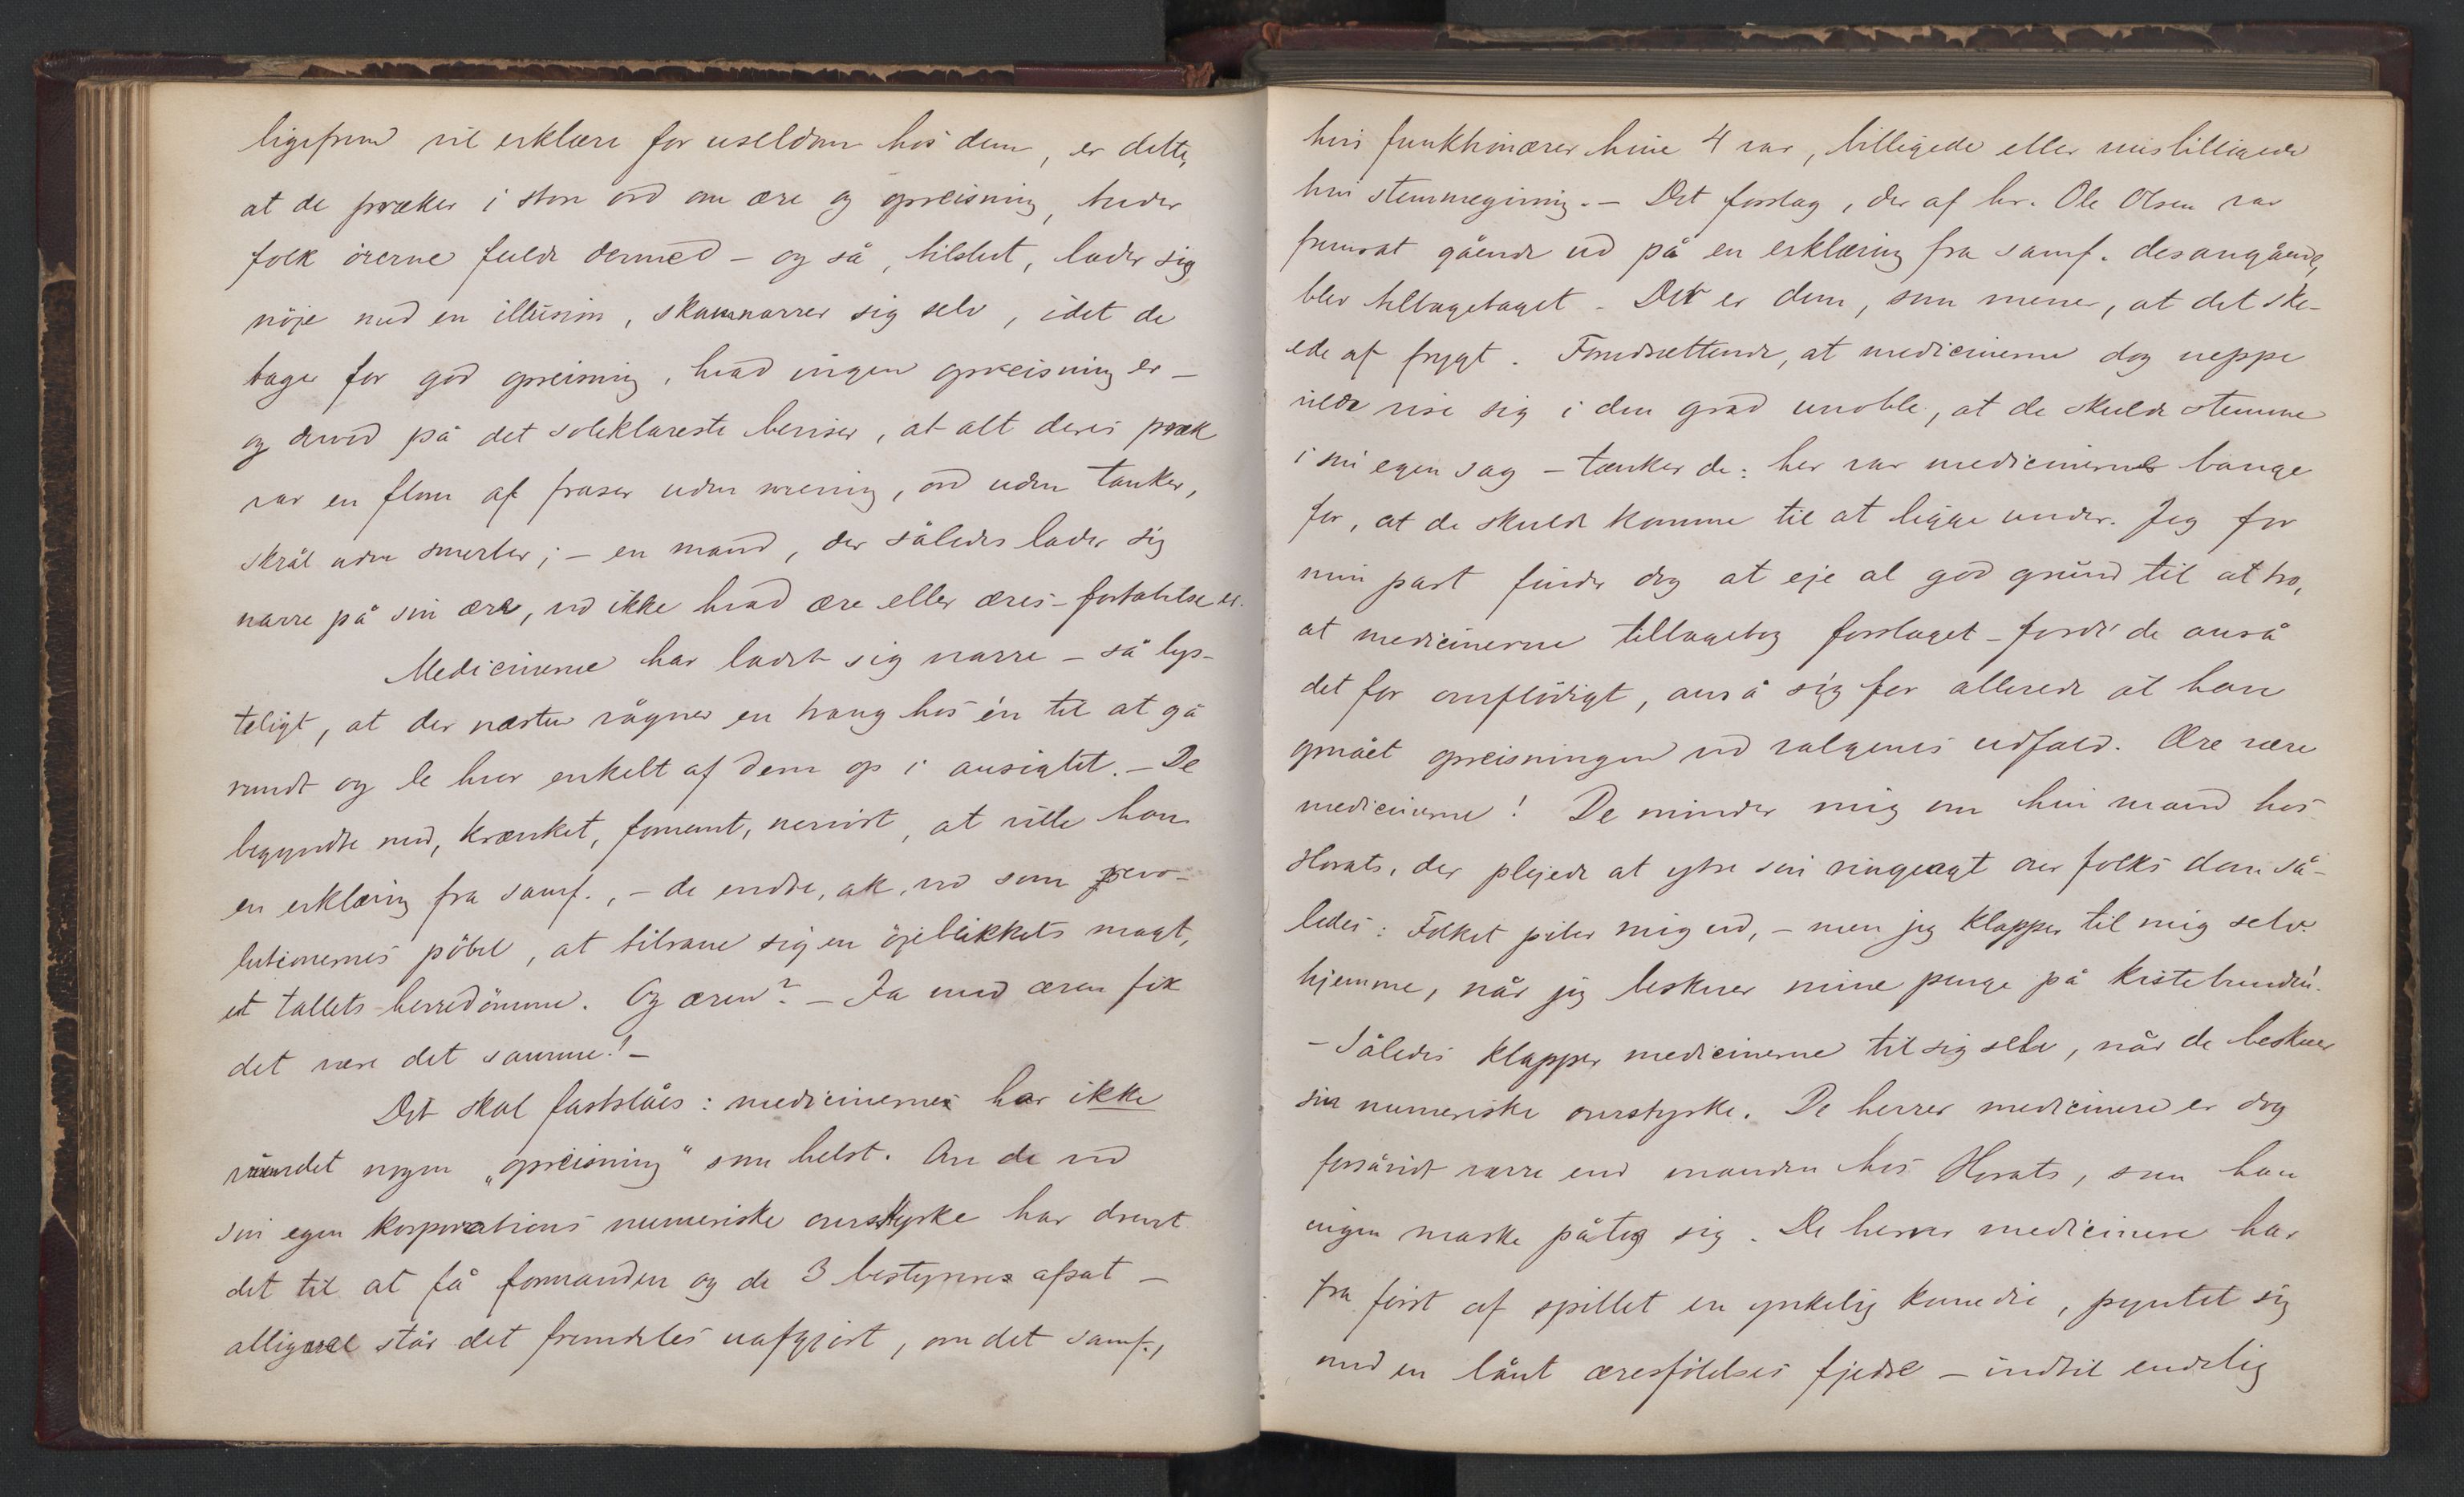 ligefrem vil erklære for useldom hos dem, er dette,
at de præker i store ord om ære og opreisning, tuder
folk örerne fulde dermed – og så, tilslut, lader sig
nöje med en illusion, skamnarrer sig selv, idet de
tager for god opreisning, hvad ingen opreisning er –
og derved på det soleklareste beviser, at alt deres præk
var en flom af fraser uden mening, ord uden tanker,
skrål uden smerter; – en mand, der således lader sig
narre på sin ære, ved ikke hvad ære eller æres-forhold er.
Medicinerne har ladet sig narre – så lys-
teligt, at der næsten vågner en trang hos én til at gå
rundt og le hver enkelt af dem op i ansigtet. – De
begyndte med, krænket, fornemt, nervöst, at ville have
en erklæring fra samf., – de endte, ak, ved som revo-
lutionernes pöbel, at tilrane sig en öjeblikkets magt,
et tallets herredömme. Og æren? – Ja med æren fik
det være det samme! –
Det skal fastslåes: medicinerne har ikke
vundet nogen „opreisning" som helst. Om de ved
sin egen korporations numeriske overstyrke har drevet
det til at få formanden og de 3 bestyrere afsat –
alligevel står det fremdeles uafgjort, om det samf.,
hvis funktionærer hine 4 var, billigede eller misbilligede
hin stemmegivning. – Det forslag, der af hr. Ole Olsen var
fremsat gående ud på en erklæring fra samf. desangående,
blev tilbagetaget – Der er dem, som mener, at det ske-
ede af frygt. Forudsættende, at medicinerne dog neppe
vilde vise sig i den grad unoble, at de skulde stemme
i sin egen sag – tænker de: her var medicinerne bange
for, at de skulde komme til at ligge under. Jeg for
min part finder dog at eje al god grund til at tro,
at medicinerne tilbagetog forslaget – fordi de anså
det for overflödigt, anså sig for allerede at have
opnået opreisningen ved valgenes udfald. Ære være
medicinerne! De minder mig om hin mand hos
Horats, der plejede at ytre sin ringeagt over folks dom så-
ledes: Folket piber mig ud, – men jeg klapper til mig selv
hjemme, når jeg beskuer mine penge på kistebunden!
– Således klapper medicinerne til sig selv, når de beskuer
sin numeriske overstyrke. De herrer medicinere er dog
forsåvidt værre end manden hos Horats, som han
ingen maske påtog sig. De herrer medicinere har
fra först af spillet en ynkelig komedie, pyntet sig
med en lånt æresfölelses fjedre – indtil endelig